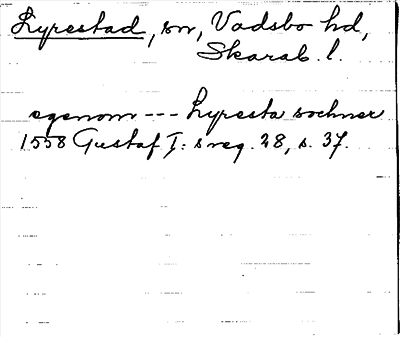 Lyrestad, sn, Vadsbo hd,
Skarab. l.
egenom --- Lyresta sochner
1558 Gustaf I: s reg. 28, s. 37.